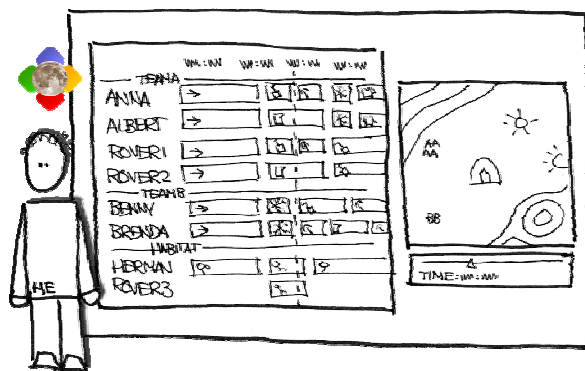 TEAM A
ANNA
ALBERT
ROVER1
ROVER2
TEAM B
BENNY
BRENDA
HABITAT
HERMAN
ROVER3
AA
AA
BB
TIME:
ME